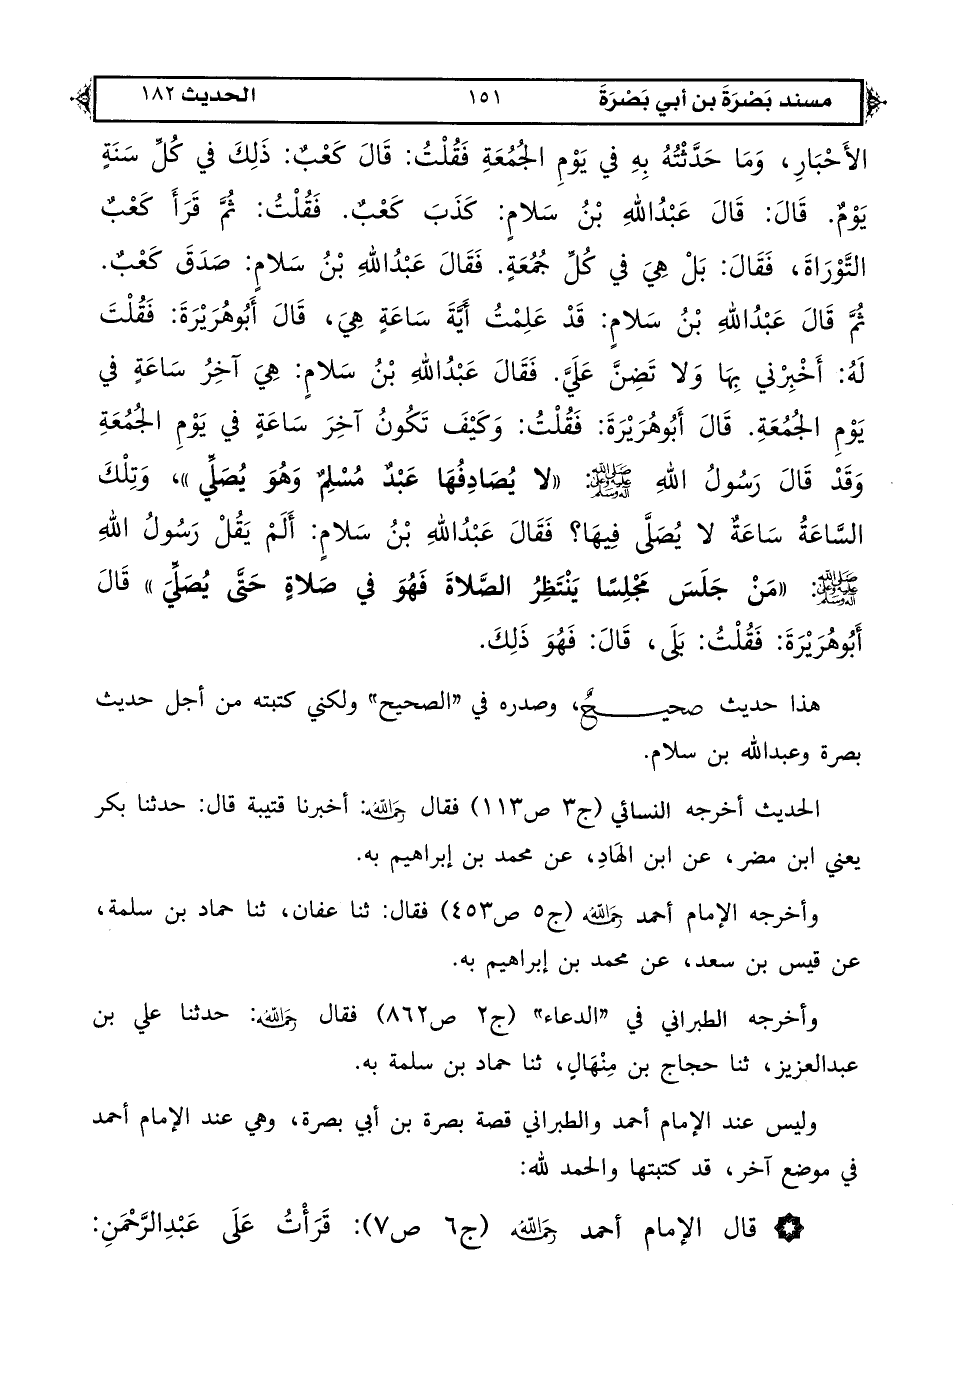 مسند بَصْرَةَ بن أبي بَصْرَةَ ١٥١ الحديث ١٨٢
الأَحْبَارِ، وَمَا حَدَّثْتُهُ بِهِ فِي يَوْمِ الجُمُعَةِ فَقُلْتُ: قَالَ كَعْبٌ: ذَلِكَ فِي كُلِّ سَنَةٍ
يَوْمٌ. قَالَ: قَالَ عَبْدُاللهِ بْنُ سَلامٍ: كَذَبَ كَعْبٌ. فَقُلْتُ: ثُمَّ قَرَأَ كَعْبٌ
التَّوْرَاةَ، فَقَالَ: بَلْ هِيَ فِي كُلِّ جُمُعَةٍ. فَقَالَ عَبْدُاللهِ بْنُ سَلامٍ: صَدَقَ كَعْبٌ.
ثُمَّ قَالَ عَبْدُاللهِ بْنُ سَلامٍ: قَدْ عَلِمْتُ أَيَّةَ سَاعَةٍ هِيَ، قَالَ أَبُوهُرَيْرَةَ: فَقُلْتُ
لَهُ: أَخْبِرْنِي بِهَا وَلا تَضِنَّ عَلَيَّ. فَقَالَ عَبْدُاللهِ بْنُ سَلامٍ: هِيَ آخِرُ سَاعَةٍ فِي
يَوْمِ الجُمُعَةِ. قَالَ أَبُوهُرَيْرَةَ: فَقُلْتُ: وَكَيْفَ تَكُونُ آخِرَ سَاعَةٍ فِي يَوْمِ الجُمُعَةِ
وَقَدْ قَالَ رَسُولُ اللهِ ﷺ: «لا يُصَادِفُهَا عَبْدٌ مُسْلِمٌ وَهُوَ يُصَلِّي»، وَتِلْكَ
السَّاعَةُ سَاعَةٌ لا يُصَلَّى فِيهَا؟ فَقَالَ عَبْدُاللهِ بْنُ سَلامٍ: أَلَمْ يَقُلْ رَسُولُ اللهِ
ﷺ: «مَنْ جَلَسَ مَجْلِسًا يَنْتَظِرُ الصَّلاةَ فَهُوَ فِي صَلاةٍ حَتَّى يُصَلِّيَ» قَالَ
أَبُوهُرَيْرَةَ: فَقُلْتُ: بَلَى، قَالَ: فَهُوَ ذَلِكَ.
هذا حديث صحيـــــحٌ، وصدره في «الصحيح» ولكني كتبته من أجل حديث
بصرة وعبدالله بن سلام.
الحديث أخرجه النسائي (ج٣ ص١١٣) فقال رحمه الله: أخبرنا قتيبة قال: حدثنا بكر
يعني ابن مضر، عن ابن الهَادِ، عن محمد بن إبراهيم به.
وأخرجه الإمام أحمد رحمه الله (ج٥ ص٤٥٣) فقال: ثنا عفان، ثنا حماد بن سلمة،
عن قيس بن سعد، عن محمد بن إبراهيم به.
وأخرجه الطبراني في «الدعاء» (ج٢ ص٨٦٢) فقال رحمه الله: حدثنا علي بن
عبدالعزيز، ثنا حجاج بن مِنْهَالٍ، ثنا حماد بن سلمة به.
وليس عند الإمام أحمد والطبراني قصة بصرة بن أبي بصرة، وهي عند الإمام أحمد
في موضع آخر، قد كتبتها والحمد لله:
قال الإمام أحمد رحمه الله (ج٦ ص٧): قَرَأْتُ عَلَى عَبْدِالرَّحْمَنِ: